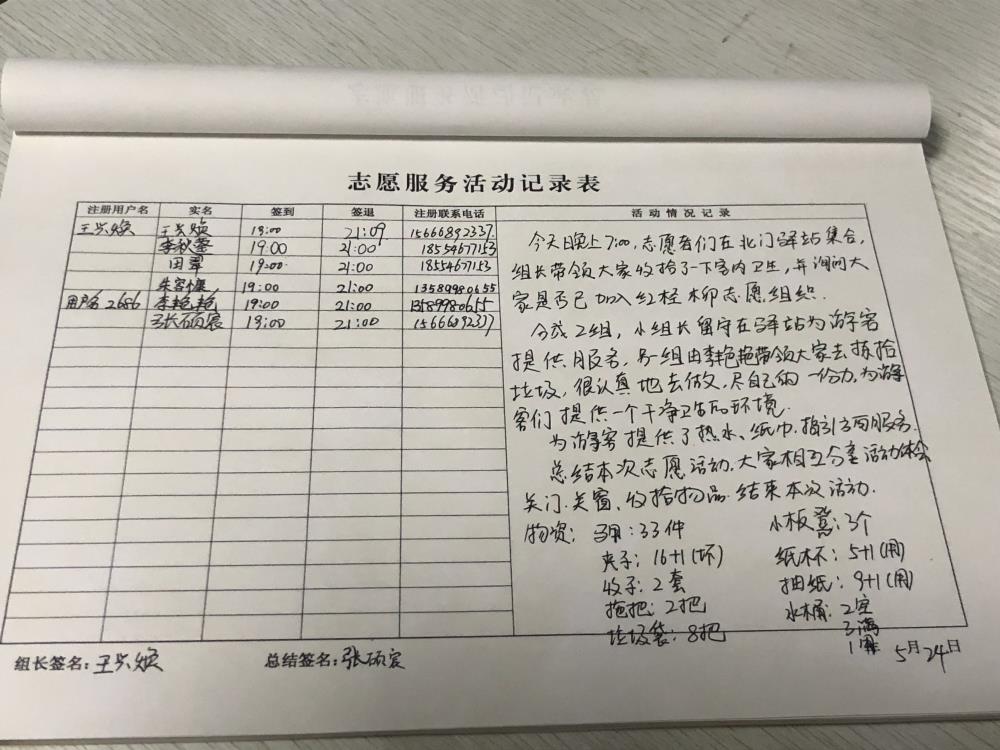 志愿服务活动记录表
注册用户名 实名 签到 签退 注册联系电话 活动情况记录
王兴焕 王兴焕 19:00 21:09 15666892337
李秋蓥 19:00 21:00 18554677153
田翠 19:00 21:00 18554677153
朱容 19:00 21:00 13589980655
用户名2686 李艳艳 19:00 21:00 13589980655
张硕宸 19:00 21:00 15666892337
今天晚上7:00,志愿者们在北门驿站集合,
组长带领大家收拾了一下室内卫生,并询问大
家是否已加入红柽柳志愿组织.
分成2组,小组长留守在驿站为游客
提供服务,另组由李艳艳带领大家去拣拾
垃圾,很认真地去做,尽自己的一份力,为游
客们提供一个干净卫生的环境.
为游客提供了热水、纸巾.指引方面服务.
总结本次志愿活动.大家相互分享活动体会
关门.关窗、收拾物品.结束本次活动.
物资: 马甲:33件 小板凳:3个
夹子:16+1(坏) 纸杯:5+1(用)
收子:2套 抽纸:9+1(用)
拖把:2把 水桶:2空
垃圾袋:8把 3满
1用
组长签名:王兴焕 总结签名:张硕宸 5月24日